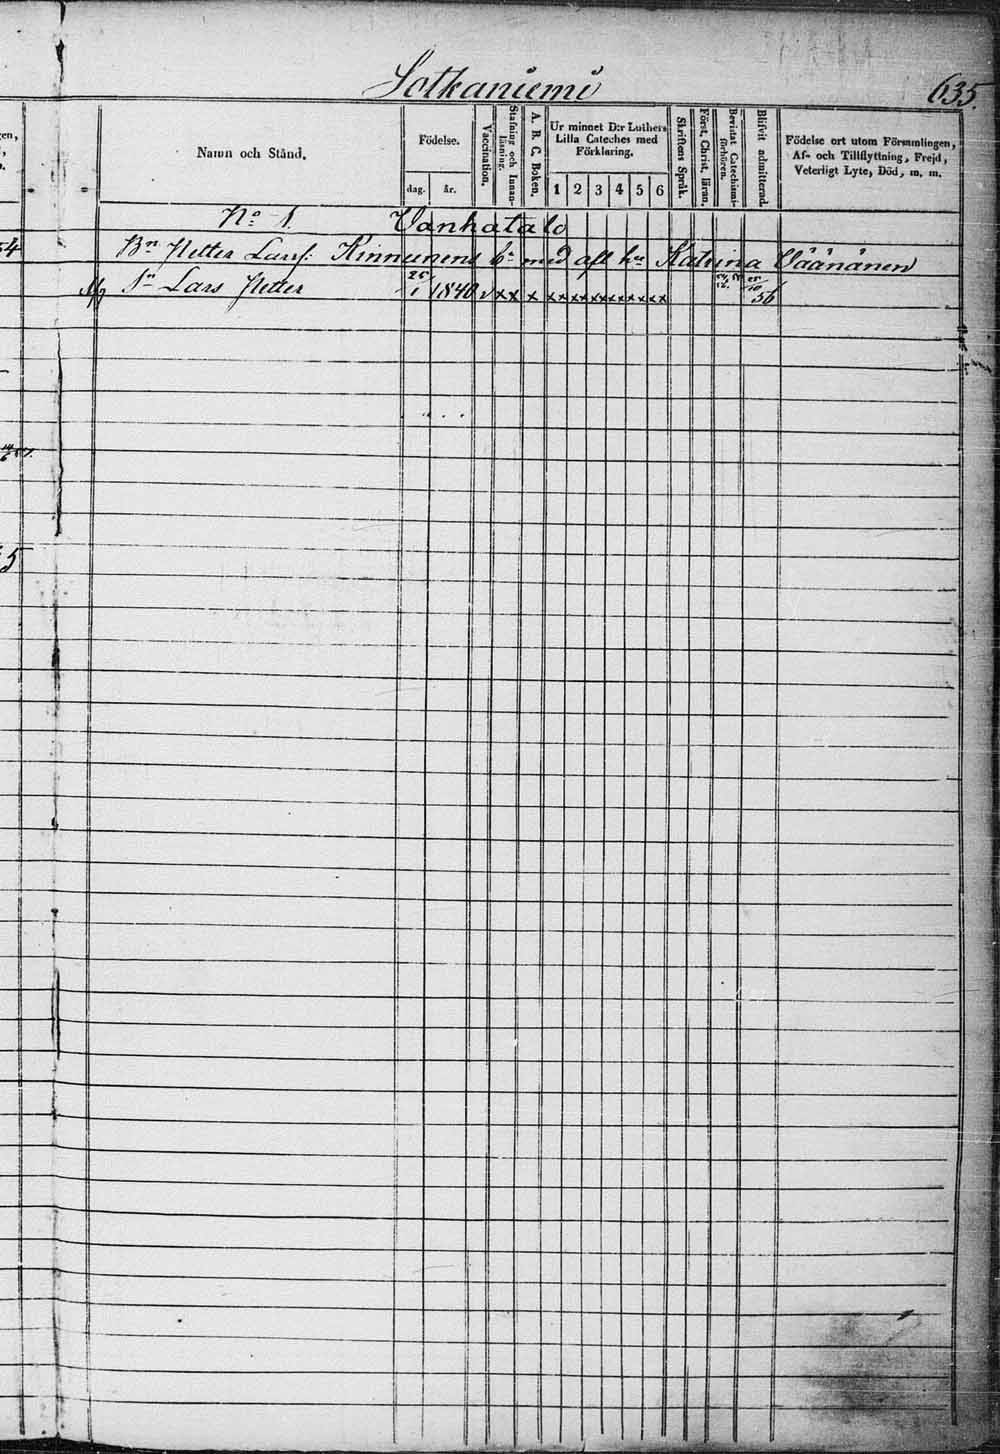 Sotkaniemi
635.
Namn och Stånd.
Födelse.
dag. år.
Vaccination.
Stafning och Innan-läsning.
A. B. C. Boken.
Ur minnet D:r Luthers
Lilla Cateches med
Förklaring.
1 2 3 4 5 6
Skriftens Språk.
Först. Christ. läran.
Bevistat Catechismi-förhören.
Blifvit admitterad.
Födelse ort utom Församlingen,
Af- och Tillflyttning, Frejd,
Veterligt Lyte, Död, m. m.
No 1. Vanhatalo
54
Bn Petter Larss: Kinnunens br med afl hu Katrina Väänänen
Sn Lars Petter 25/1 1840 v x x x x x x x x x x x x x x 25/10 56
5